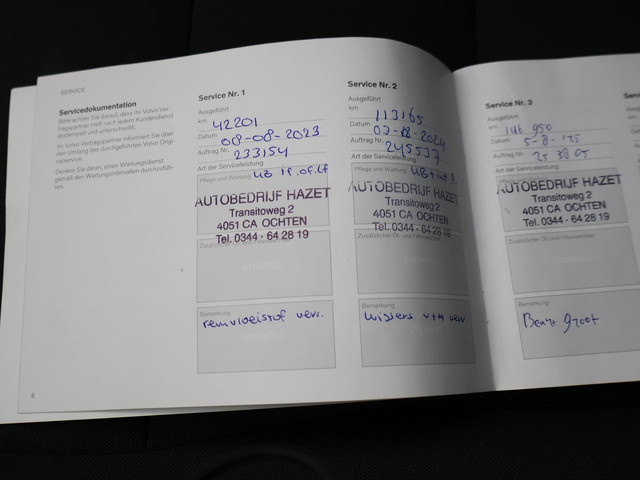 SERVICE
Servicedokumentation
Bitte achten Sie darauf, dass Ihr Volvo Ver-
tragspartner Heft nach jedem Kundendienst
abstempelt und unterschreibt.
Ihr Volvo Vertragspartner informiert Sie über
den Umfang des durchgeführten Volvo Origi-
nalservice.
Denken Sie daran, einen Wartungsdienst
gemäß den Wartungsintervallen durchzufüh-
ren.
6
Service Nr. 1
Ausgeführt
km 42201
Datum 08-08-2023
Auftrag Nr. 233154
Art der Serviceleistung
Pflege und Wartung
AUTOBEDRIJF HAZET
Transitoweg 2
4051 CA OCHTEN
Tel. 0344 - 64 28 19
Zusätzlicher Öl- und Filterwechsel
Bemerkung
remvloeistof verv.
Service Nr. 2
Ausgeführt
km 113165
Datum 2024
Auftrag Nr. 245537
Art der Serviceleistung
Pflege und Wartung
AUTOBEDRIJF HAZET
Transitoweg 2
4051 CA OCHTEN
Tel. 0344 - 64 28 19
Zusätzlicher Öl- und Filterwechsel
Bemerkung
wissers v+a verv
Service Nr. 3
Ausgeführt
km 146 950
Datum
Auftrag Nr.
Art der Serviceleistung
AUTOBEDRIJF HAZET
Transitoweg 2
4051 CA OCHTEN
Tel. 0344 - 64 28 19
Zusätzlicher Öl- und Filterwechsel
Bemerkung
Beurt groot